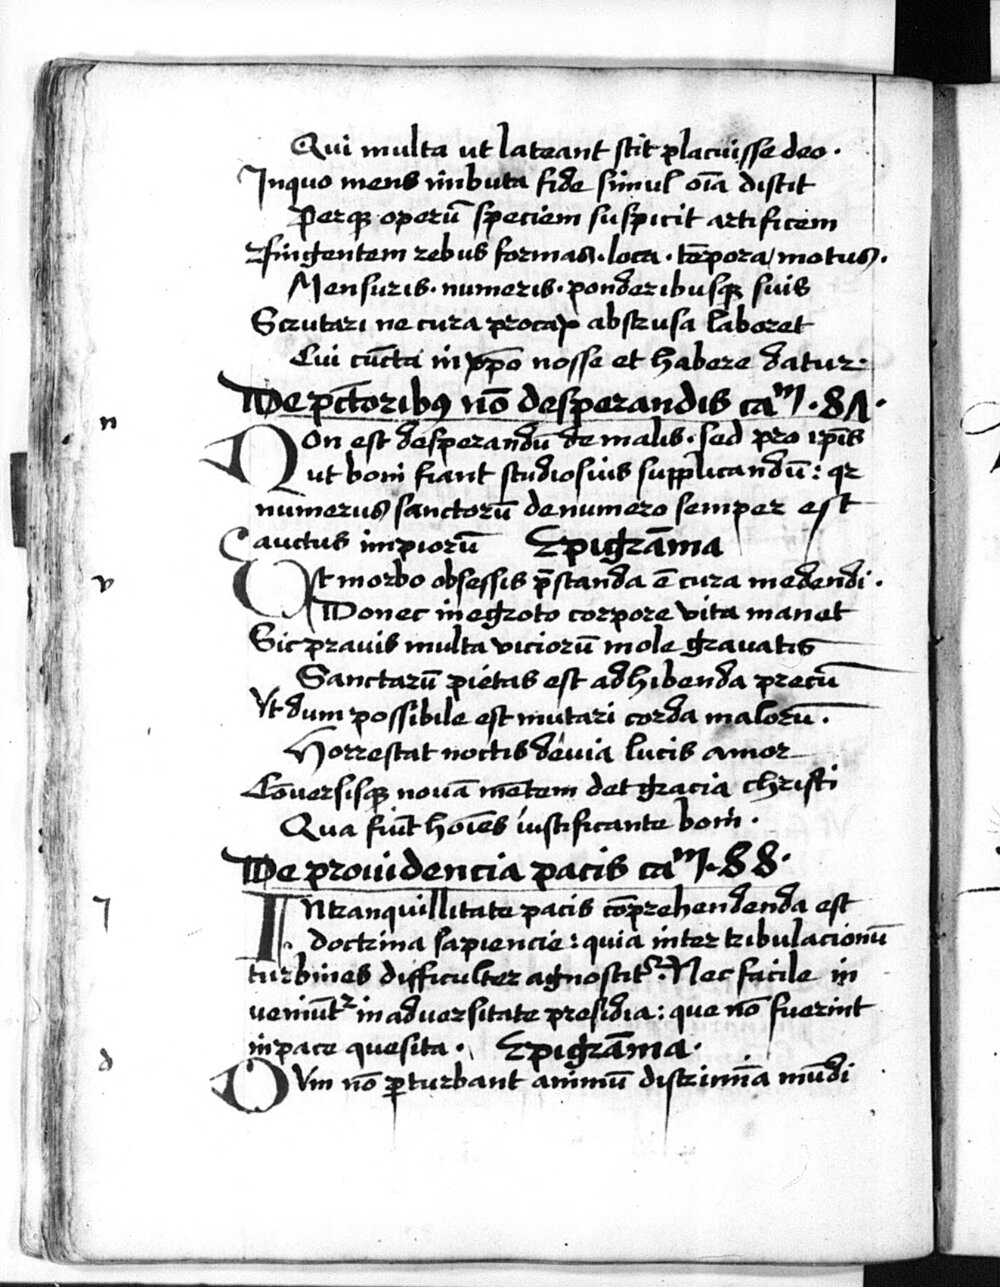 Qui multa ut lateant scit placuisse deo ·
In quo mens imbuta fide simul oīa discit
Perq; operū speciem suspicit artificem
Fingentem rebus formas · loca · tēpora / motus ·
Mensuris · numeris · ponderibusq; suis
Scrutari ne cura procax abstrusa laboret
Cui cūcta in xp̄o nosse et habere datur ·
De pctoribus nō desperandis cam · 87 ·
n
Non est desperandū de malis · sed pro ip̄is
ut boni fiant studiosius supplicandū : qr
numerus sanctorū de numero semper est
auctus impiorū Epigrāma
v
Vt morbo obsessis p̄standa ē cura medendi ·
Donec in egroto corpore vita manet
Sic pravis multa viciorū mole gravatis
Sanctarū pietas est adhibenda precū
Vt dum possibile est mutari corda malorū ·
Horrescat noctis devia lucis amor
Cōversisq; novā mētem det gracia christi
Qua fiūt hoīes iustificante boni ·
De providencia pacis cam · 88 ·
I
In tranquillitate pacis cōprehendenda est
doctrina sapiencie : quia inter tribulacionū
turbines difficulter agnoscitr · Nec facile in
veniūtr in adversitate presidia : que nō fuerint
in pace quesita · Epigrāma ·
d
Dum nō perturbant animū discrimīa mūdi